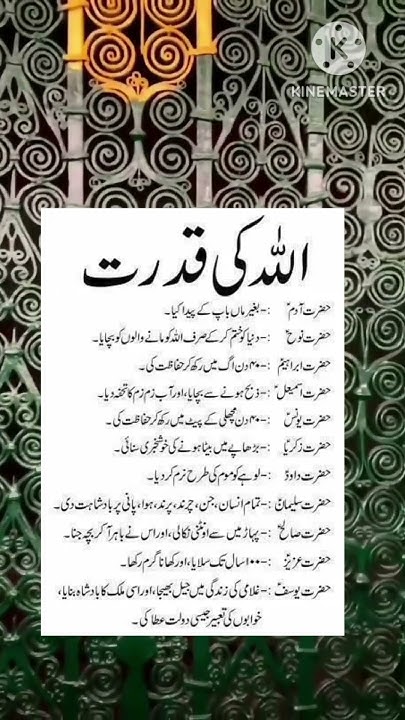 KINEMASTER
اللہ کی قدرت
حضرت آدمؑ :- بغیر ماں باپ کے پیدا کیا۔
حضرت نوحؑ :- دنیا کو ختم کر کے صرف اللہ کو ماننے والوں کو بچایا۔
حضرت ابراہیمؑ :- ۴۰ دن آگ میں رکھ کر حفاظت کی۔
حضرت اسمٰعیلؑ :- ذبح ہونے سے بچایا، اور آب زم زم کا تحفہ دیا۔
حضرت یونسؑ :- ۴۰ دن مچھلی کے پیٹ میں رکھ کر حفاظت کی۔
حضرت زکریاؑ :- بڑھاپے میں بیٹا ہونے کی خوشخبری سنائی۔
حضرت داودؑ :- لوہے کو موم کی طرح نرم کر دیا۔
حضرت سلیمانؑ :- تمام انسان، جن، چرند، پرند، ہوا، پانی پر بادشاہت دی۔
حضرت صالحؑ :- پہاڑ میں سے اونٹنی نکالی، اور اس نے باہر آ کر بچہ جنا۔
حضرت عزیرؑ :- ۱۰۰ سال تک سلایا، اور کھانا گرم رکھا۔
حضرت یوسفؑ :- غلامی کی زندگی میں جیل بھیجا، اور اسی ملک کا بادشاہ بنایا،
خوابوں کی تعبیر جیسی دولت عطا کی۔